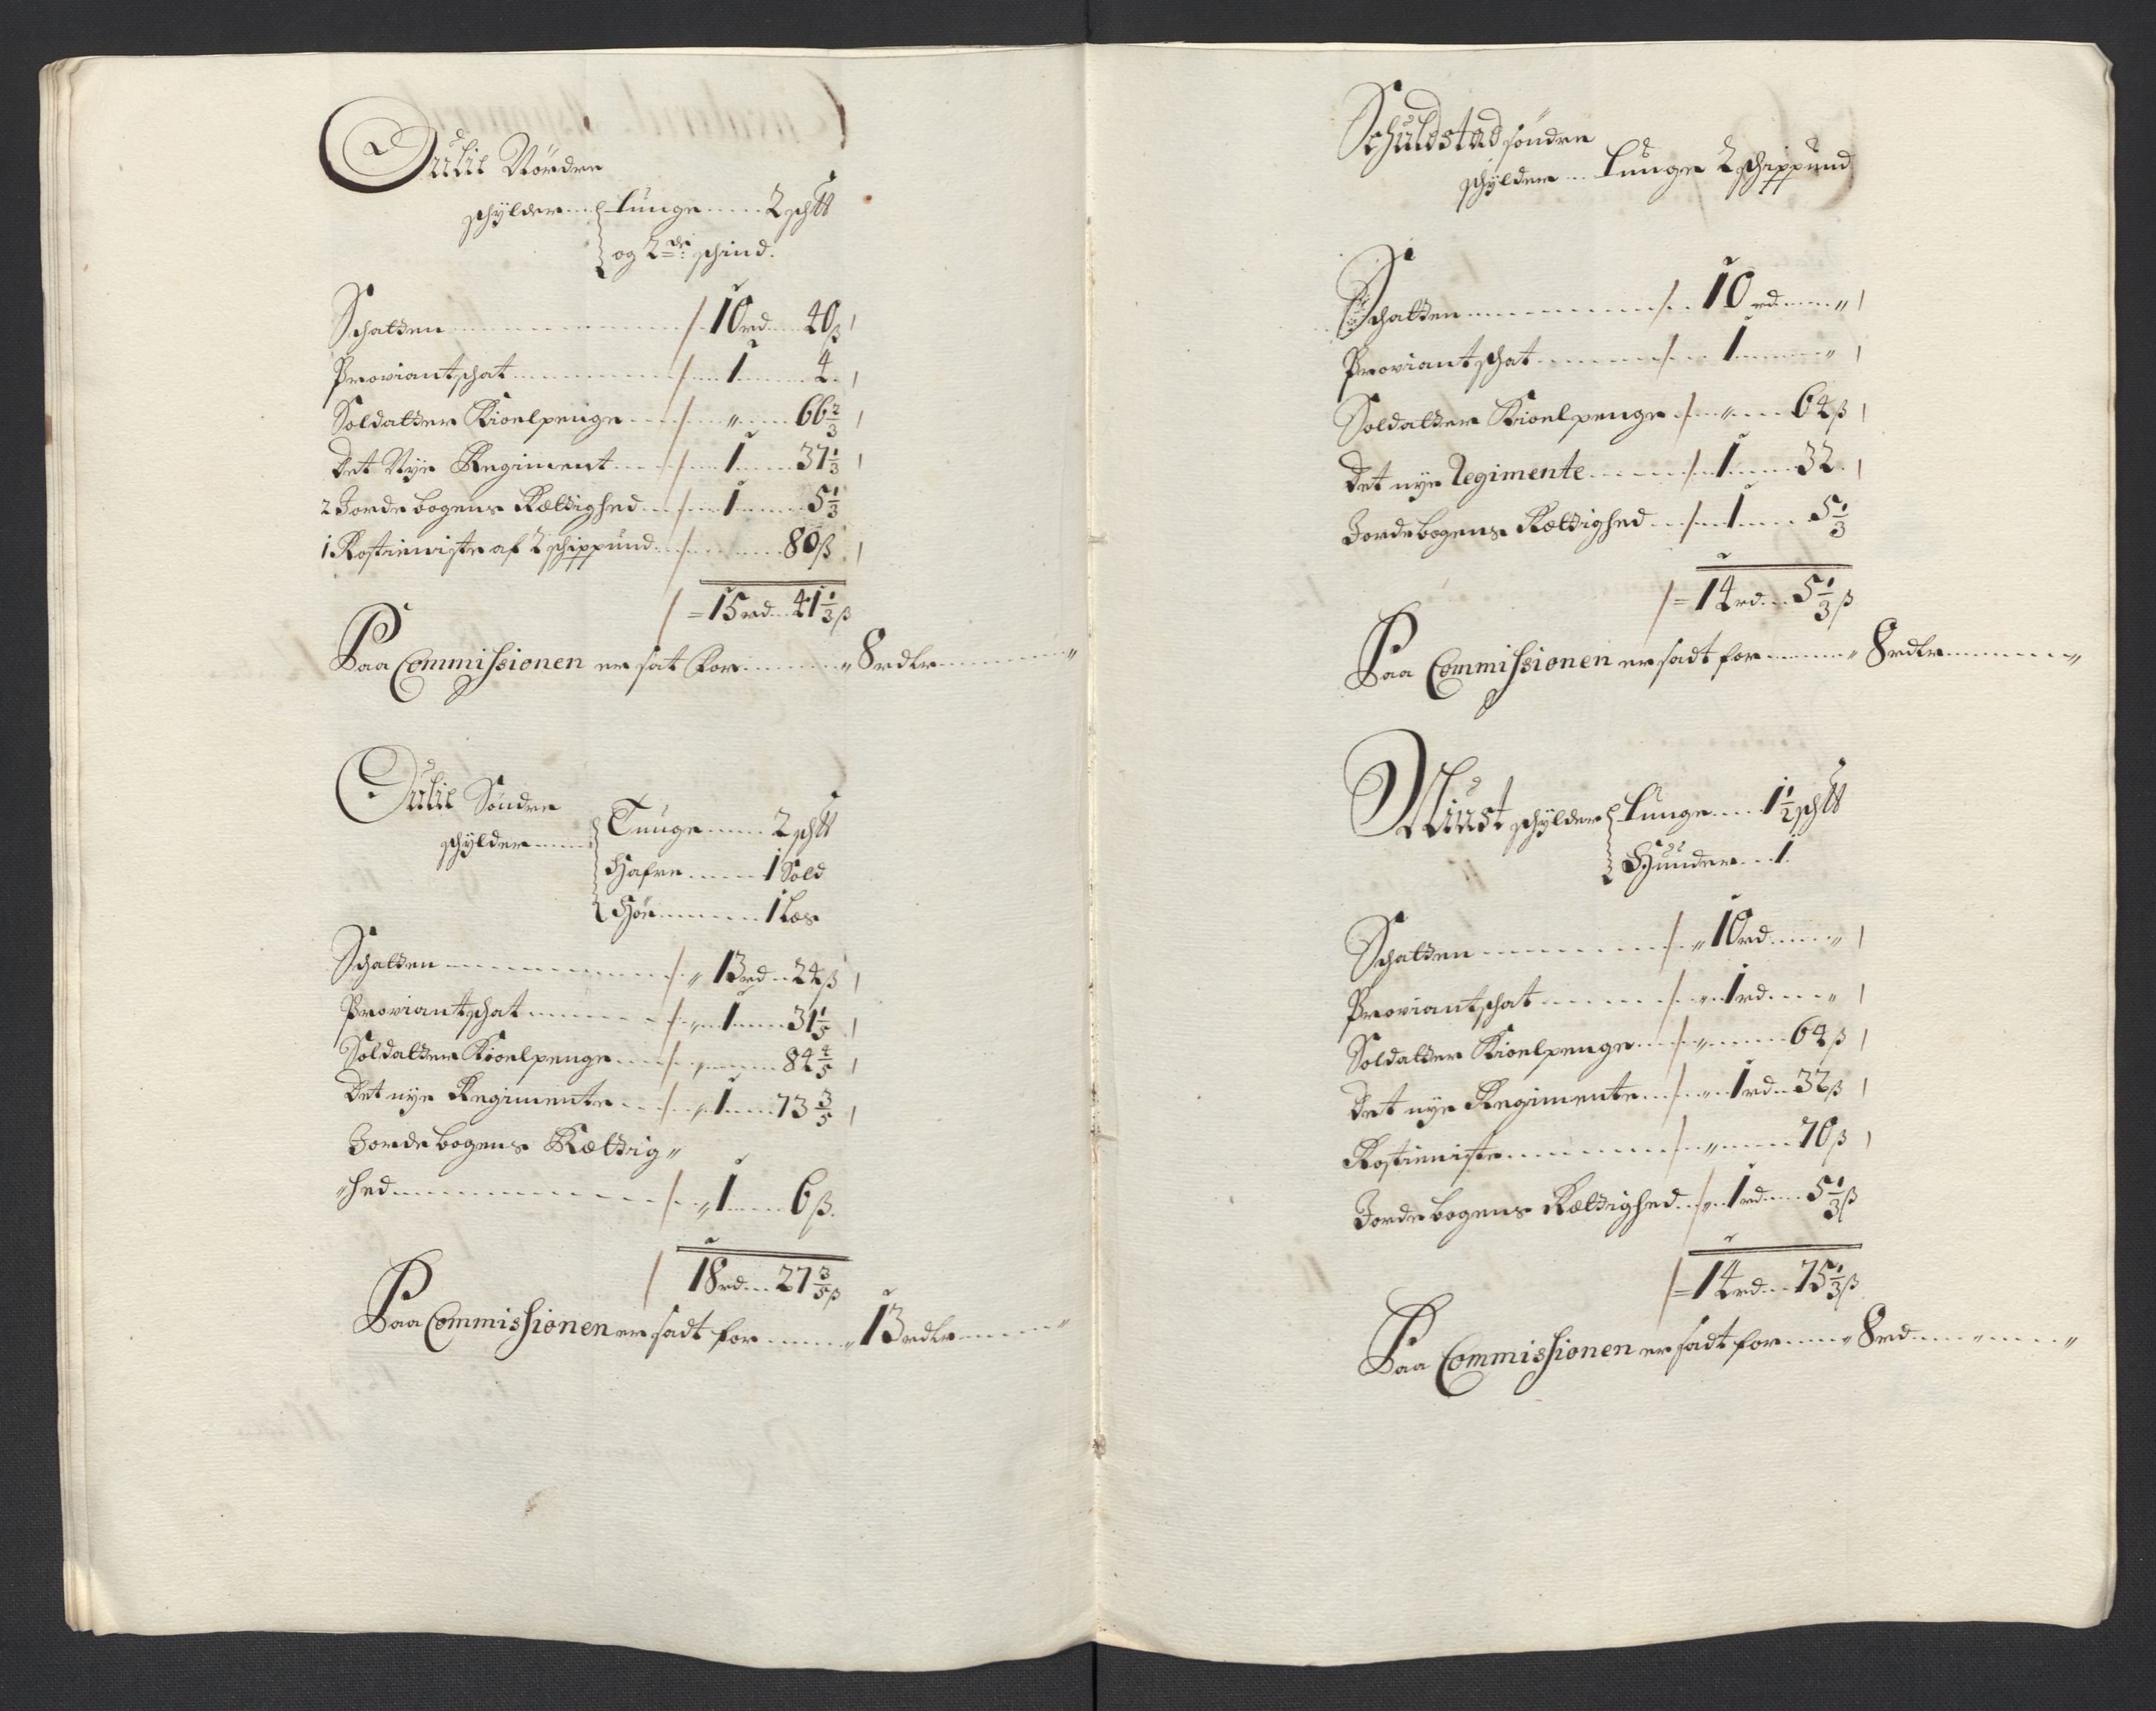 Dulie Nordre
schylder .... tunge ..... 2 schtt
og 2de schind.
Schatten ........ 10 rd .... 40 ß
Proviantschat ........ 1 ........ 4.
Soldatter Kioelpenge .... " .... 66 2/3
Det Nye Regiment .... 1 .... 37 1/3
2 Jordebogens Rættighed .... 1 .... 5 1/3
1 Rostieniste af 2 schippund ........ 80 ß
= 15 rd .. 41 1/3 ß
Paa Commissionen er sat for ........ " 8 rdlr ........ "
Dulie Söndre
schylder ....
Tunge ..... 2 schtt
Hafre ..... 1 Sold
Höe ........ 1 Læs
Schatten ........ " 13 rd .. 24 ß
Proviantschat ........ " .. 1 .... 31 1/5
Soldatter Kioelpenge .... " .... 84 4/5
Det nye Regimente .... " 1 .... 73 3/5
Jordebogens Rættig"
"hed ........ " 1 .... 6 ß.
18 rd ... 27 3/5 ß
Paa Commissionen er sadt for ...... " 13 rdlr ........ "
Schuldstad söndre
schylder ... tunge 2 schippund
Schatten ........ 10 rd ..... "
Proviantschat ........ 1 ........ "
Soldatter Kioelpenge .... " .... 64 ß
Det nye Regimente ........ 1 .... 32.
Jordebogens Rættighed .... 1 .... 5 1/3
= 14 rd ... 5 1/3 ß
Paa Commissionen er sadt for ...... " 8 rdlr ........ "
Must schylder tunge .... 1 1/2 schtt
Huuder ... 1.
Schatten ........ " 10 rd ..... "
Proviantschat ........ " .. 1 rd .... "
Soldatter Kioelpenge .... " ...... 64 ß
Det nye Regimente .... " .. 1 rd .. 32 ß
Rostieniste ........ " ...... 70 ß
Jordebogens Rættighed .. " .. 1 rd .... 5 1/3 ß
= 14 rd ... 75 1/3 ß
Paa Commissionen er sadt for .... " 8 rd ........ "